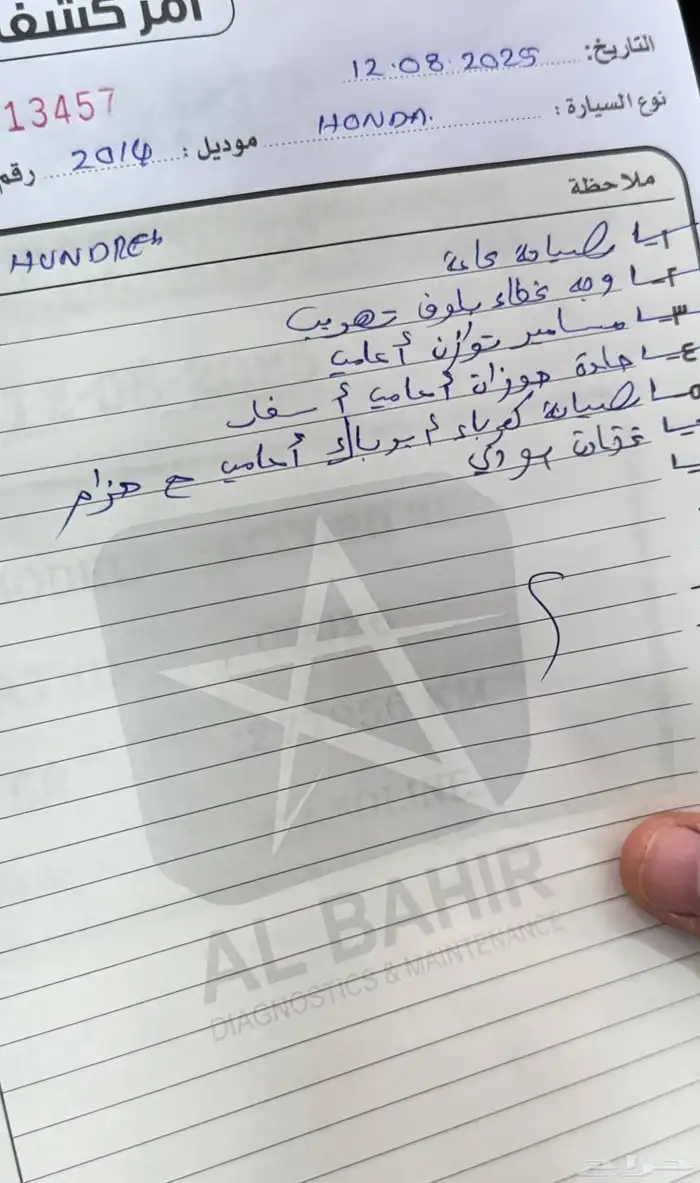 أمر كشف
13457
التاريخ: 12.08.2025
نوع السيارة: HONDA.
موديل: 2014 رقم
ملاحظة
HUNDRED
١- صيانة عامة
٢- وجه غطاء بلوف تهريب
٣- مسامير توازن أمامي
٤- جلدة جوزات أمامي أسفل
٥- صيانة كهرباء أيرباق أمامي ع حزام
بودي
AL BAHIR
DIAGNOSTICS & MAINTENANCE
حراج